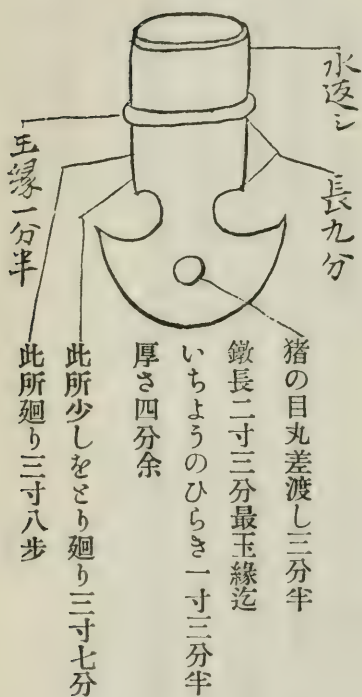 水返シ
長九分
玉縁一分半
猪の目丸差渡し三分半
鐓長二寸三分最玉緣迄
いちようのひらき一寸三分半
厚さ四分余
此所少しをとり廻り三寸七分
此所廻り三寸八步